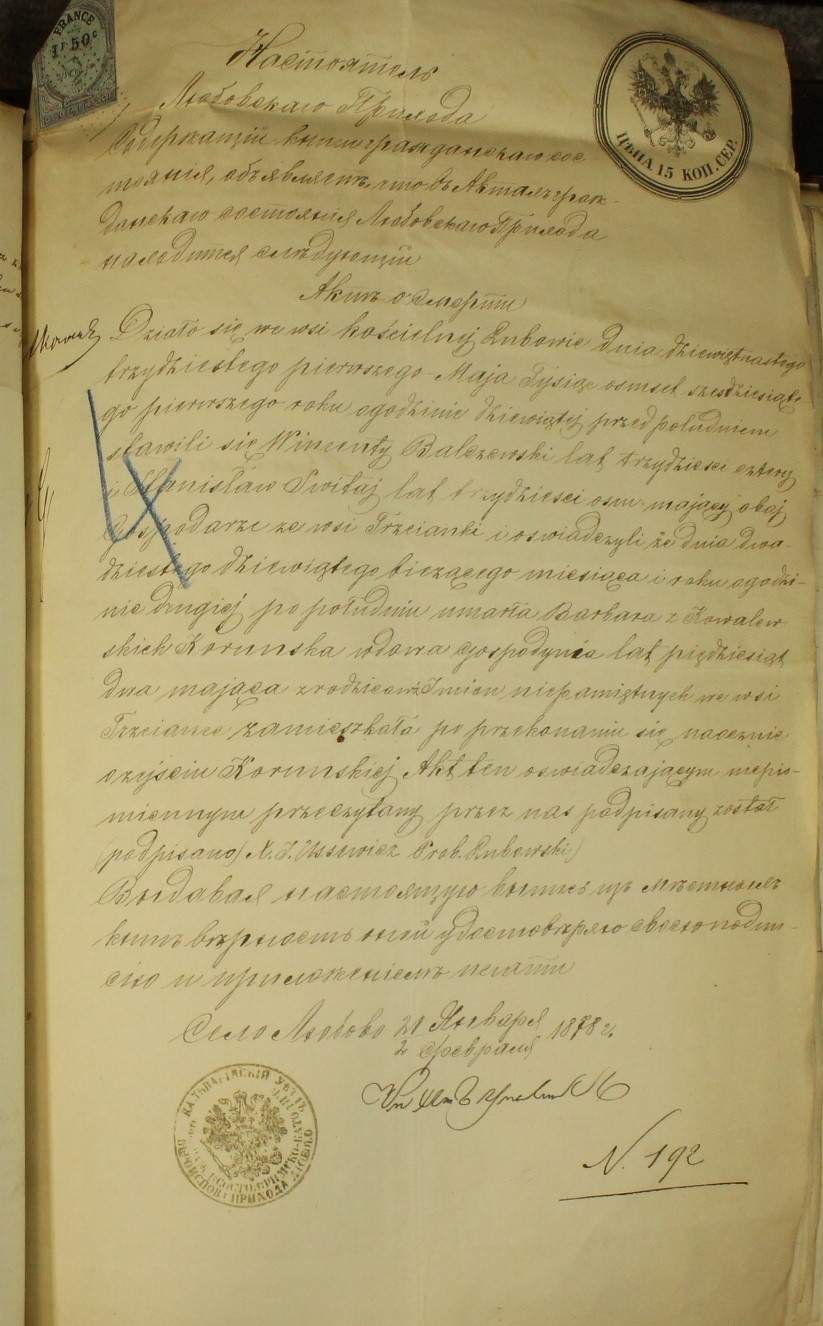 FRANCE
1F 50c
ЦѢНА 15 КОП. СЕР.
Настоятель
Любовскаго Прихода
Содержащій книги гражданскаго сос-
тоянія, объявляетъ, что въ Актахъ граж-
данскаго состоянія Любовскаго Прихода
находится слѣдующій
Актъ о Смерти
Działo się we wsi kościelnej Lubowie dnia dziewiętnastego
trzydziestego pierwszego Maja Tysiąc osmset szesdziesiąte-
go pierwszego roku ogodzinie dziewiątej przed południem
stawili się Wincenty Balczewski lat trzydziesci cztery
i Stanisław Switaj lat trzydziesci osm mający obaj
Gospodarze ze wsi Trzcianki i oswiadczyli że dnia dwu-
dziestego dziewiątego bieżącego miesiąca i roku ogodzi-
nie drugiej po południu umarła Barbara z Kowalew-
skich Korunska wdowa Gospodynia lat pięćdziesiąt
dwa mająca z rodziców Imion niepamiętnych we wsi
Trzciance zamieszkała po przekonaniu się naocznie
o zejściu Korunskiej Akt ten oswiadczającym niepis-
miennym przeczytany przez nas podpisany został
(podpisano) X. J. Ussewicz Prob. Lubowski)
Выдавая настоящую выпись изъ мѣстныхъ
книгъ вѣрность оной удостовѣряю своею подпи-
сью и приложеніемъ печати
Село Любово 21 Января 1878 г.
2 Февраля
КАЛЬВАРІЙСКІЙ УѢЗДЪ
N. 192